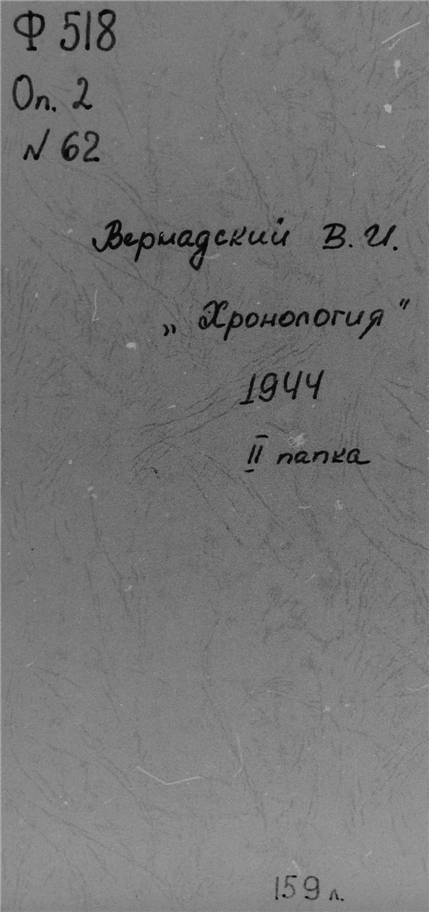 Ф 518
Оп. 2
N 62
Вернадский В. И.
„Хронология"
1944
II папка
159 л.